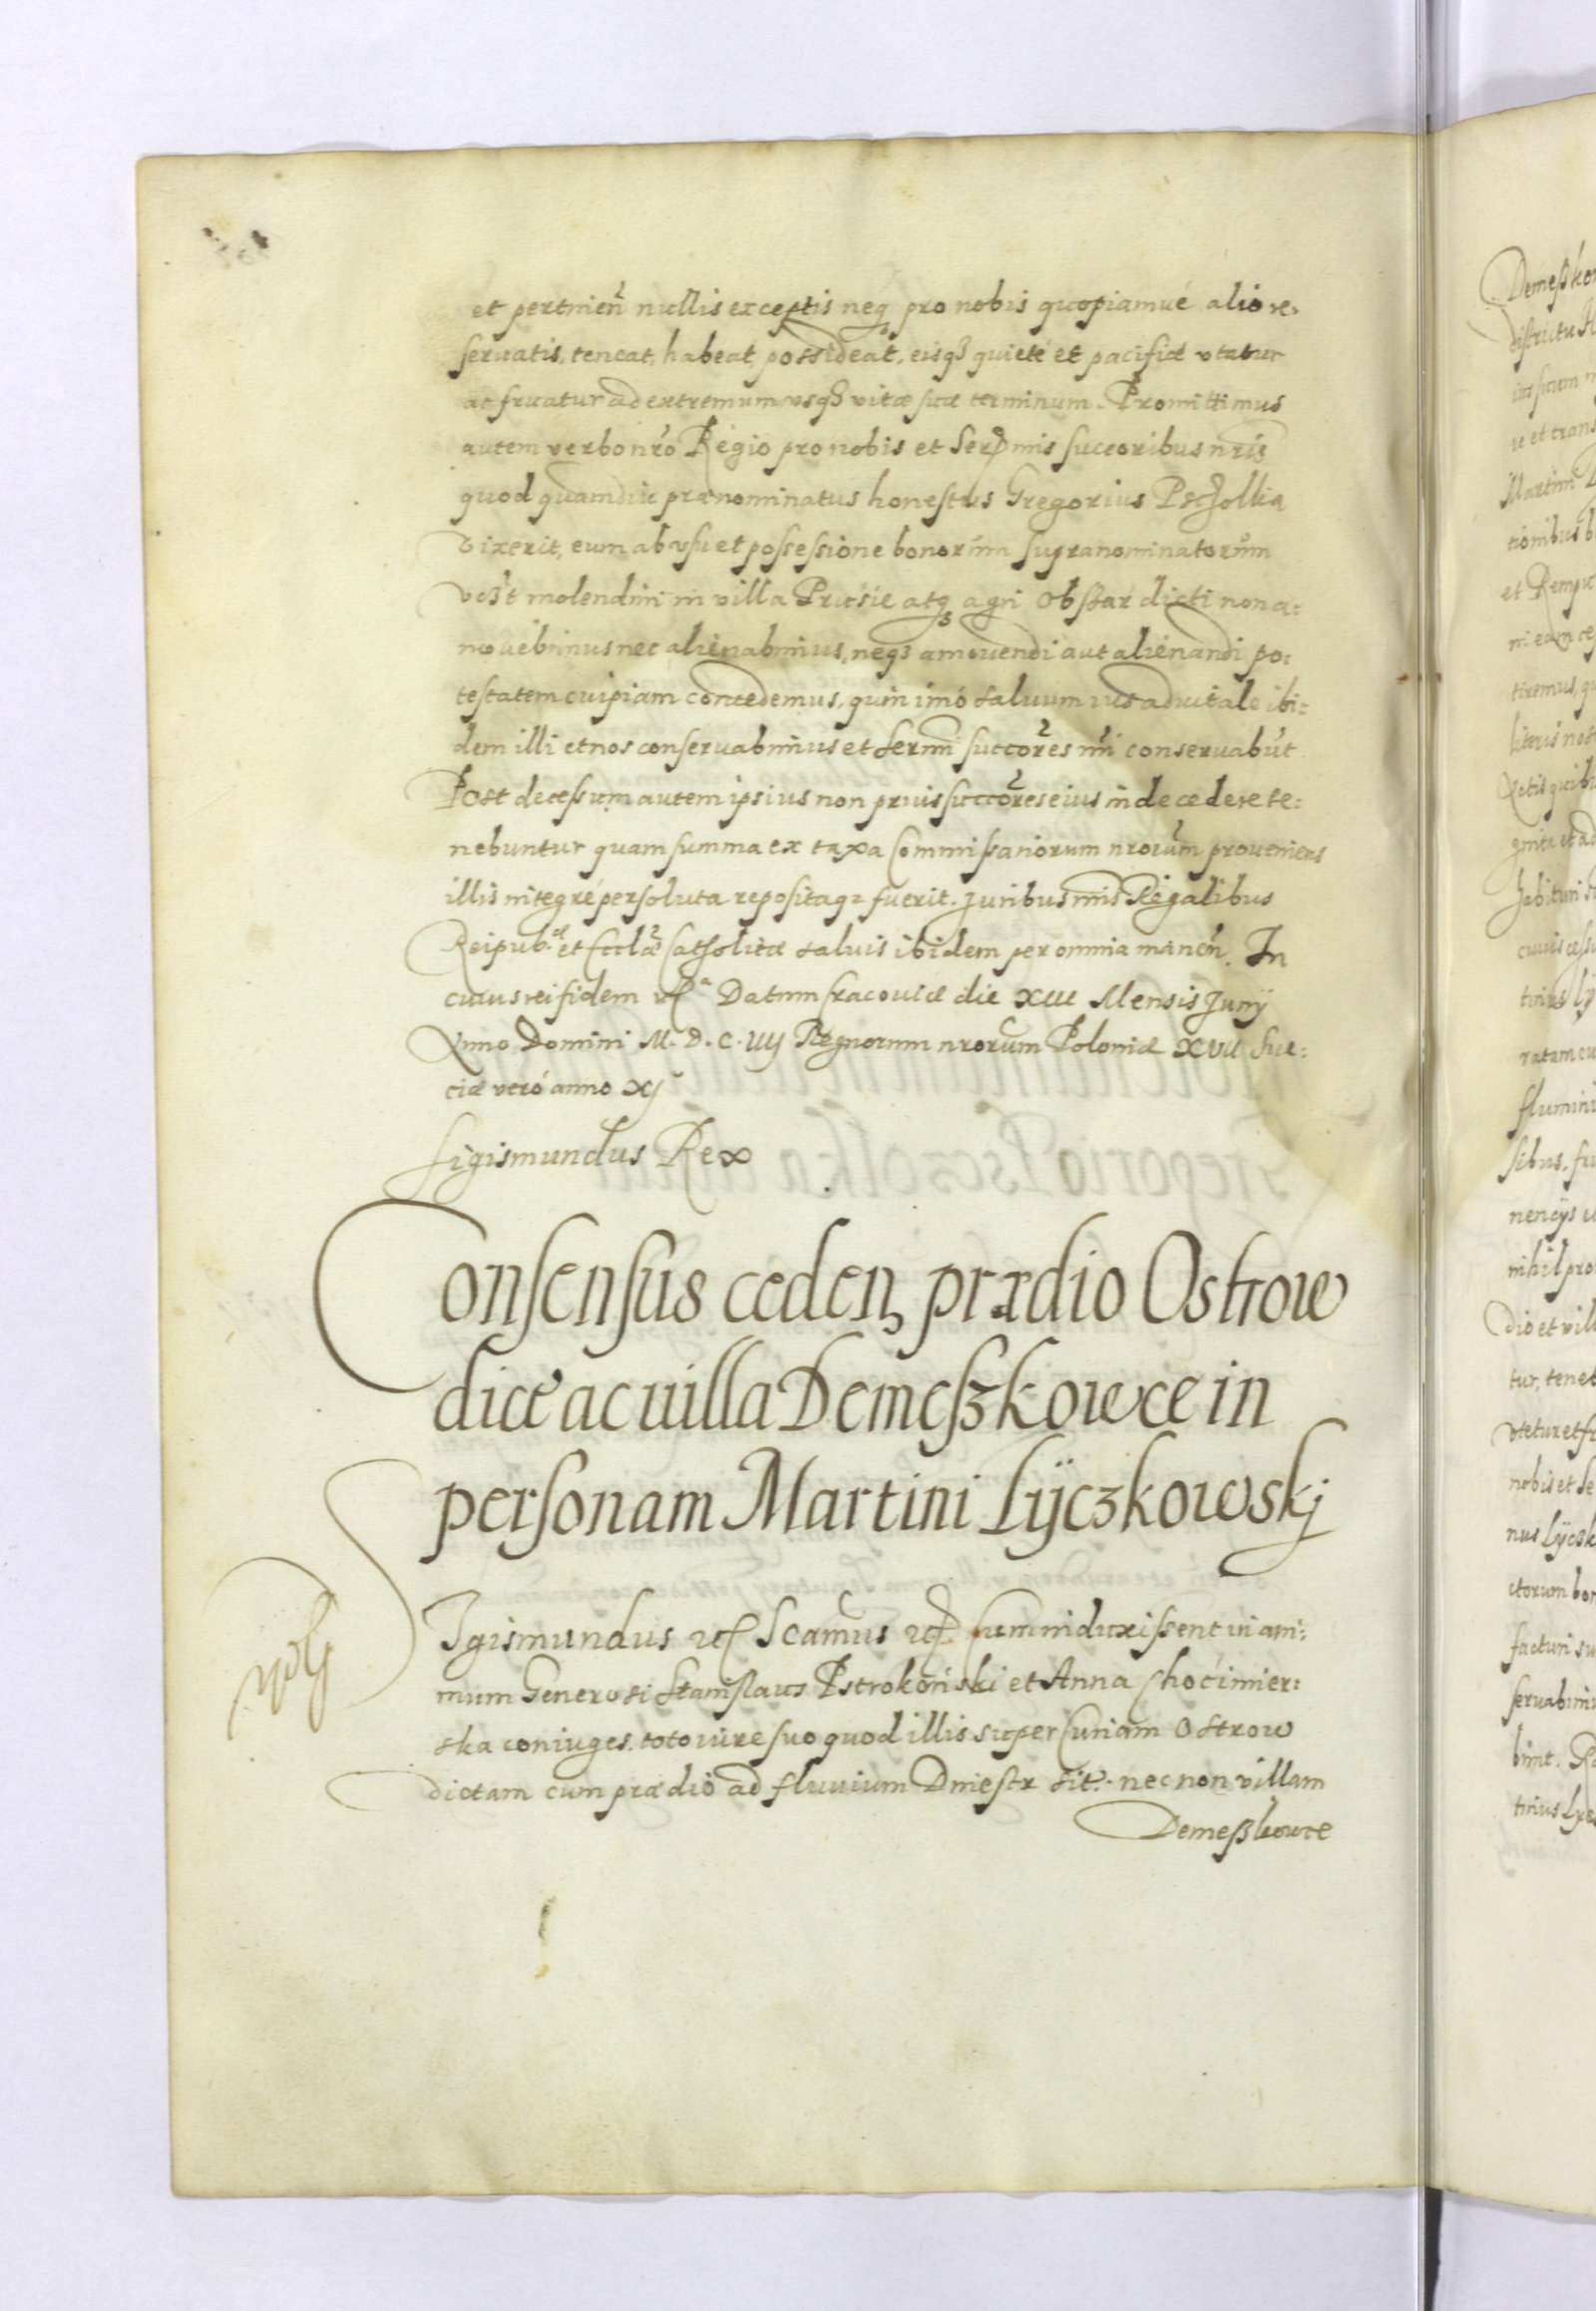 et pertinen̄ nullis exceptis neq₃ pro nobis quopiamué alio re-
servatis, tencat, habeat possideat, eisq₃ quieté et pacificé vtatur
ac fruatur ad extremum vsq₃ vitæ suæ terminum. Promittimus
autem verbo nr̄o Regio pro nobis et Serᵐⁱˢ succoribus nr̄is
quod quamdiu prænominatus honestus Gregorius Psczolka
vixerit, eum ab vsu et possessione bonorum supranominatorum
vcz̄t molendini in villa Prusie atq₃ agri Obszar dicti non a-
movebimus nec alienabimus, neq₃ amouendi aut alienandi po:
testatem cuipiam concedemus, quin imó saluum ius aduitale ibi:
dem illi et nos conservabimus et Sermi succores nr̄i conservabūt
Post decessum autem ipsius non prius succores eius inde cedere te:
nebuntur quam summa ex taxa Commissariorum nrorum proueniens
illis integré persoluta repositaq₃ fuerit. Juribus nr̄is Regalibus
Reipub.æ et Ecclæ Catholicæ saluis ibidem per omnia manen̄. In
cuius rei fidem etcᵃ Datum Cracouiæ die XIII Mensis Junÿ
Anno Domini M. D. C. IIIJ Regnorum nrorum Poloniæ XVII Sue:
ciæ veró anno XJ
Sigismundus Rex
Consensus ceden₃ prædio Ostrow
dictæ ac uilla Demeszkowce in
personam Martini Lÿczkowskj
SIgismundus etc Scamus etc Cum induxissent in ani:
mum Generosi Stanislaus Pstrokoński et Anna Chocimier:
ska coniuges. toto iure suo quod illis super Curiam Ostrow
dictam cum prædio ad fluuium Dniestr sit. necnon villam
Demeszkowce